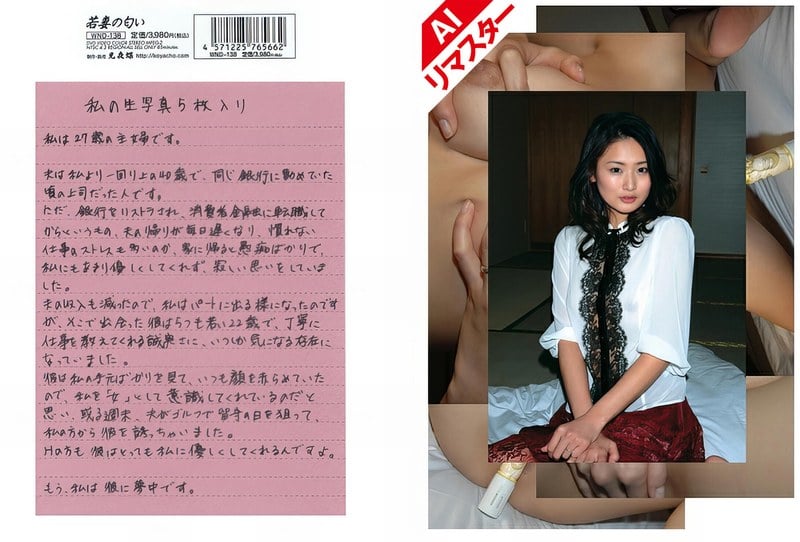 若妻の匂い
WND-138 定価3,980円(税込)
DVD VIDEO COLOR STEREO MPEG-2
http://koyacho.com
4 571225 765662
WND-138 定価3,980円(税込)
AI
リマスター
私の生写真5枚入り
私は27歳の主婦です。
夫は私より一回り上の40歳で、同じ銀行に勤めていた
頃の上司だった人です。
ただ、銀行をリストラされ、消費者金融に転職して
からというもの、夫の帰りが毎日遅くなり、慣れない
仕事のストレスも多いのか、家に帰ると愚痴ばかりで、
私にもあまり優しくしてくれず、寂しい思いをしていま
した。
夫の収入も減ったので、私はパートに出る様になったのです
が、そこで出会った彼は5つも若い22歳で、丁寧に
仕事を教えてくれる誠実さに、いつしか気になる存在に
なっていました。
彼は私の手元ばかりを見て、いつも顔を赤らめていた
ので、私を「女」として意識してくれているのだと
思い、或る週末、夫がゴルフで留守の日を狙って、
私の方から彼を誘っちゃいました。
Hの方も彼はとっても私に優しくしてくれるんですよ。
もう、私は彼に夢中です。